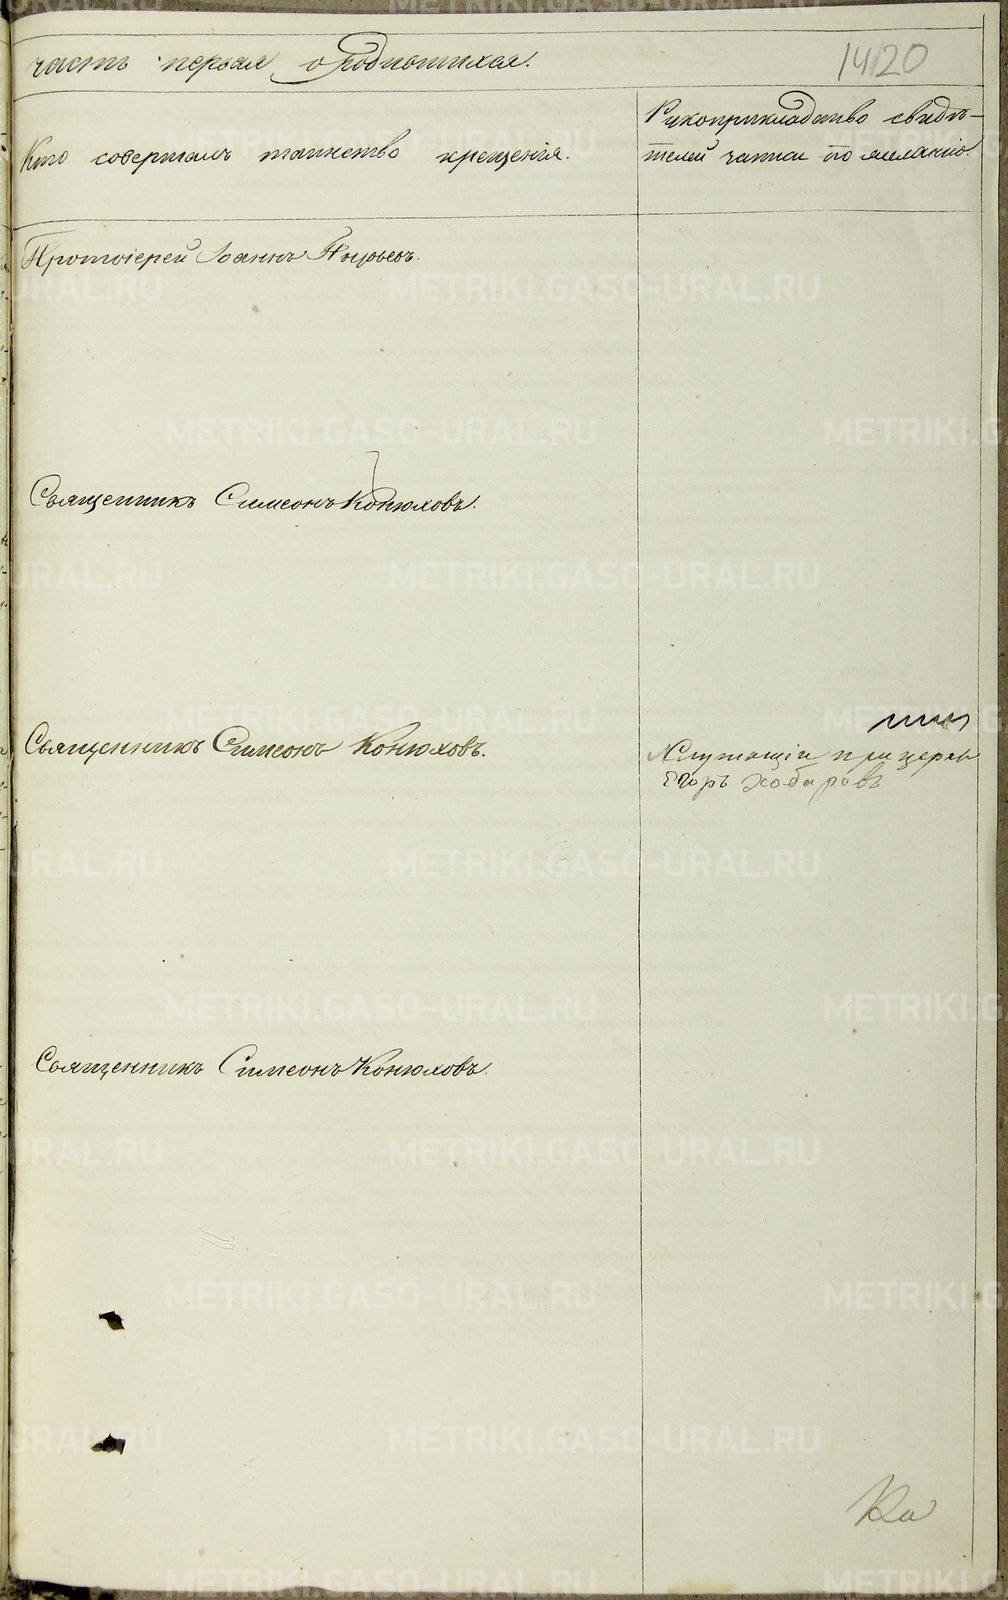 часть первая о родившихся.
1420
Кто совершалъ таинство крещенія.
Рукоприкладство свидѣ-
телей записи по желанію.
Протоіерей Іоаннъ Пырьевъ.
Священникъ Симеонъ Конюховъ.
Священникъ Симеонъ Конюховъ.
Служащій при церкв
Егоръ Хобаровъ
Священникъ Симеонъ Конюховъ.
METRIKI.GASO-URAL.RU